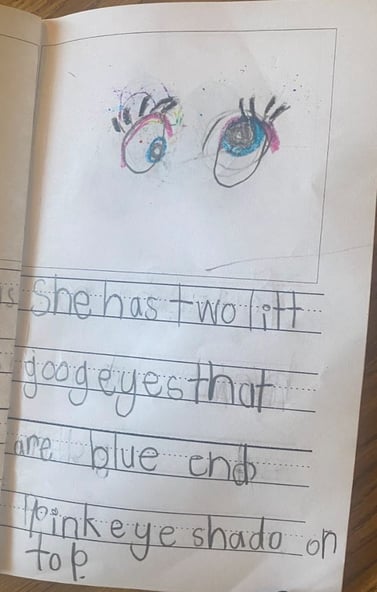 She has two litt
googeyes that
are blue end
Pink eye shado on
top.